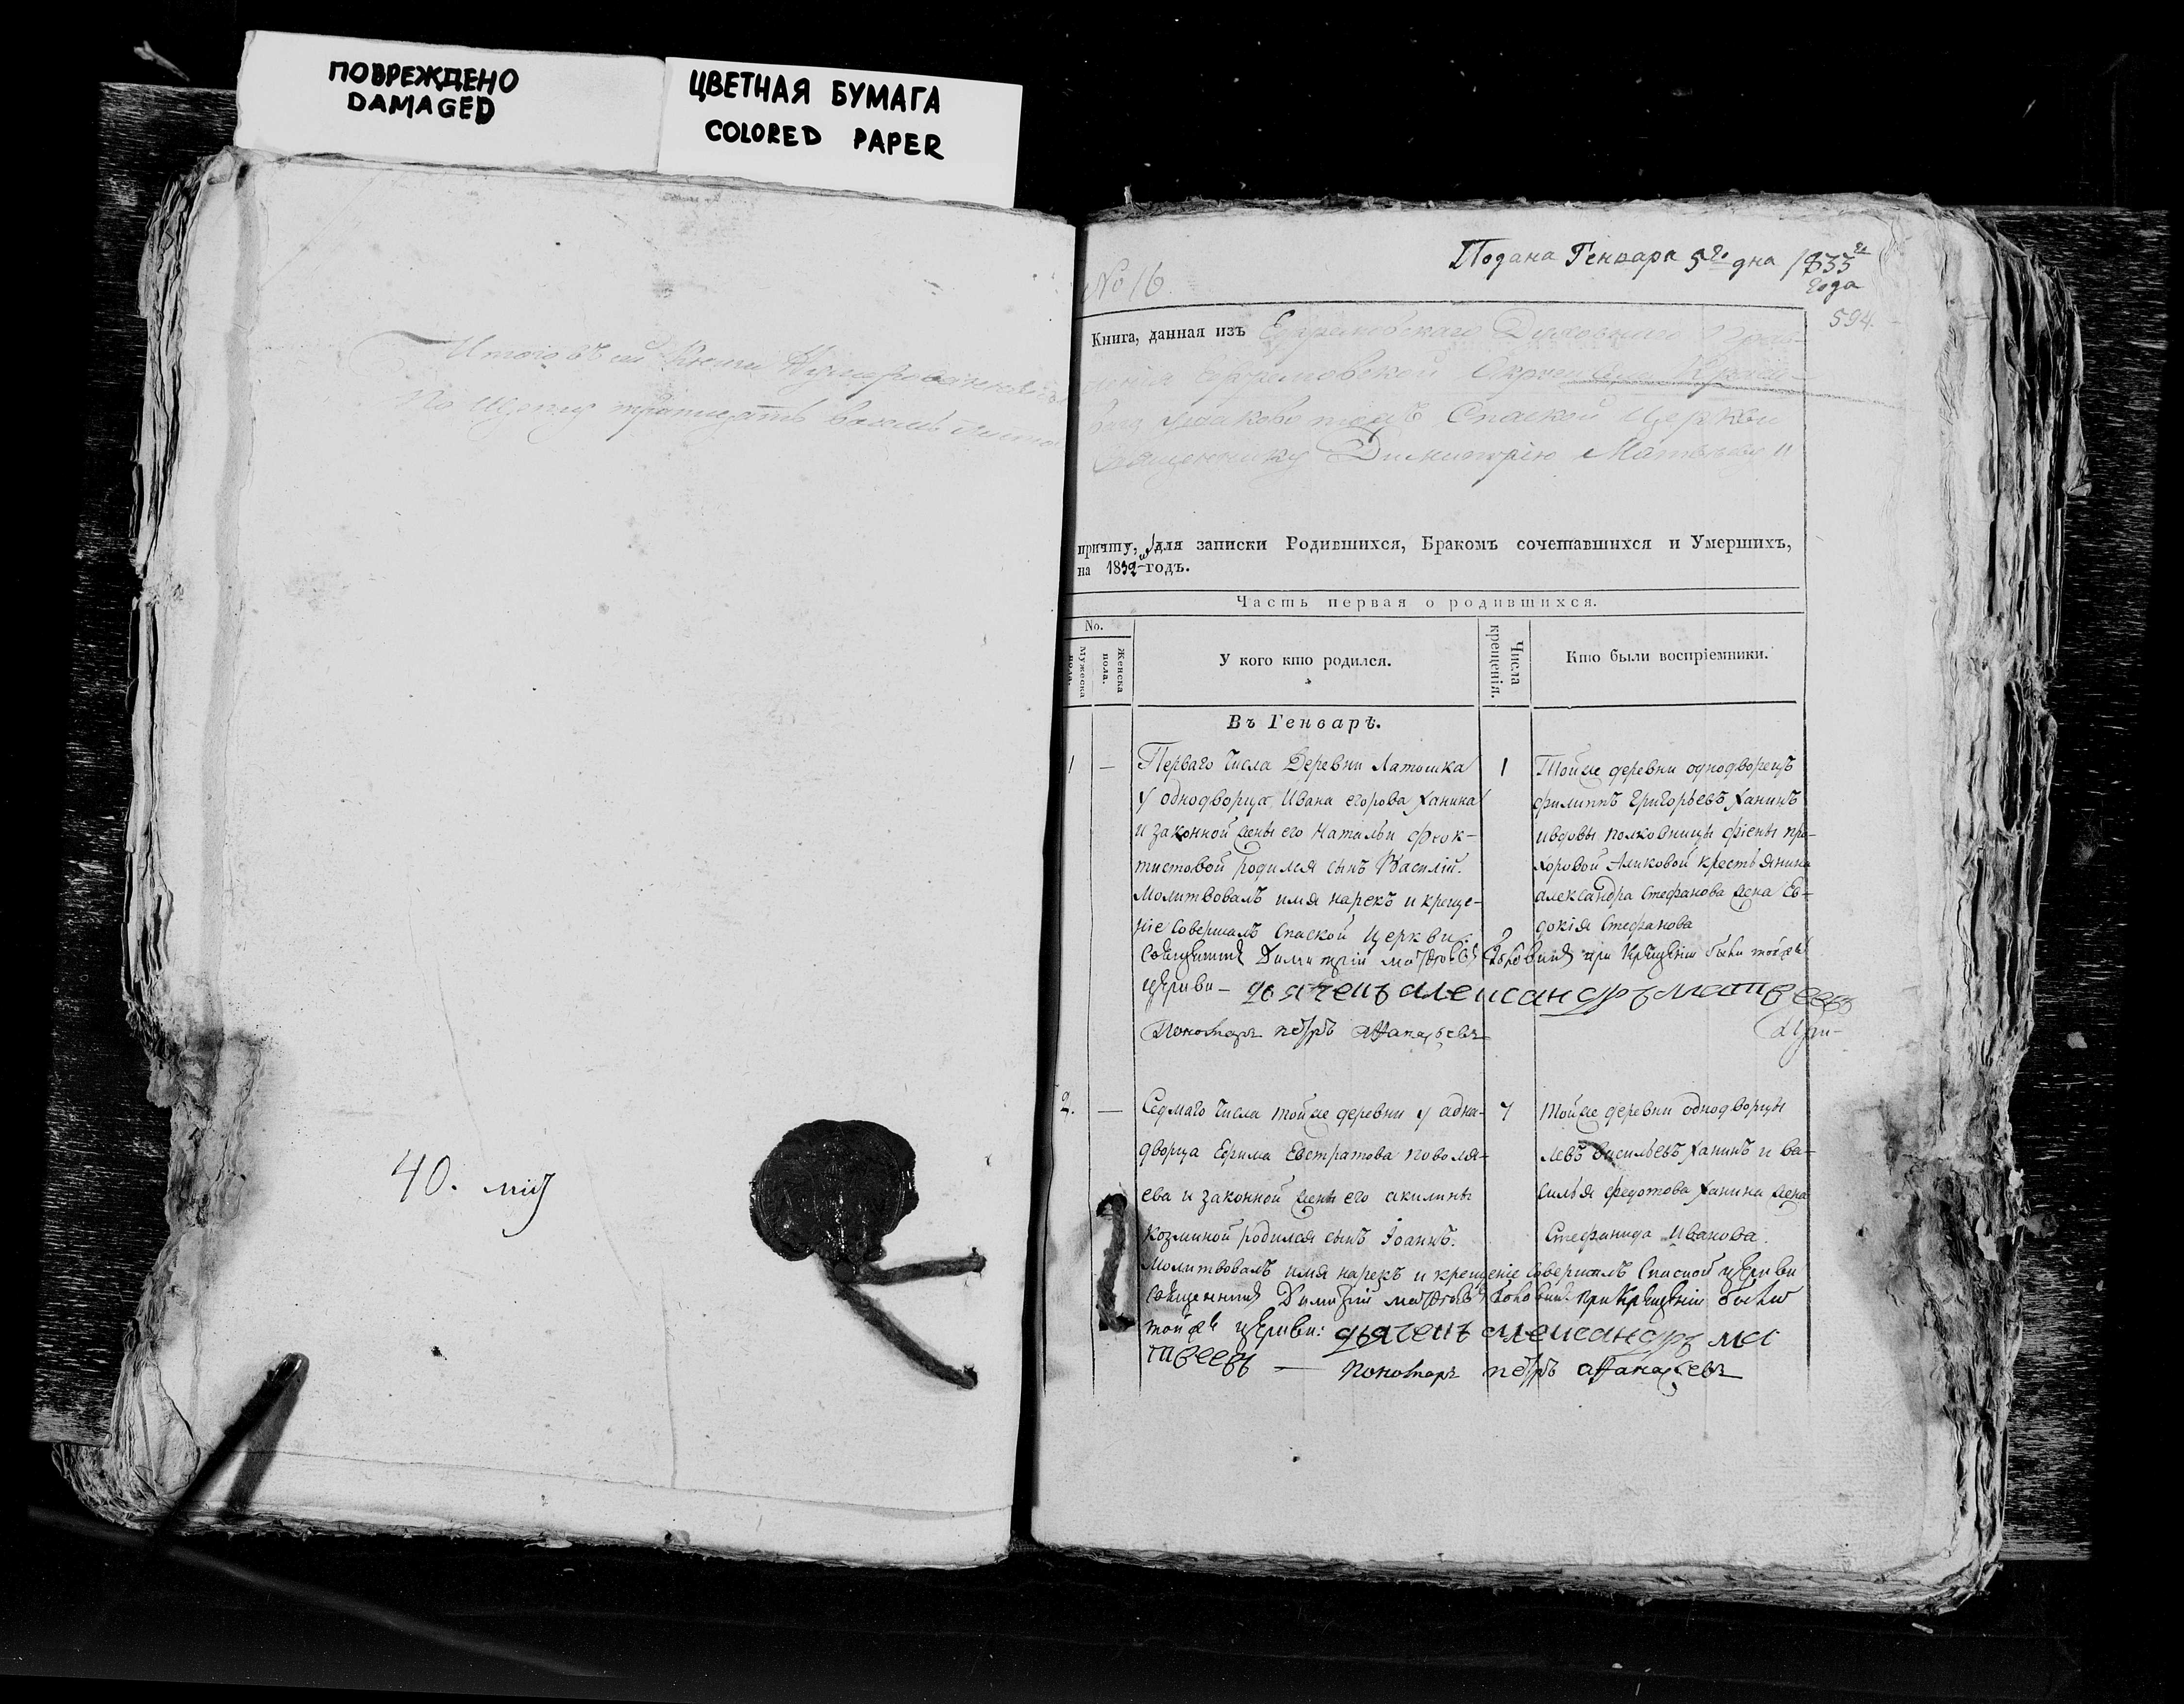 ПОВРЕЖДЕНО
DAMAGED
ЦВЕТНАЯ БУМАГА
COLORED PAPER
Итого въ сей
По листу тритцать восемь листов
40. лис
Подана Генваря 5го дня 1833го
года
No 16
594.
Книга, данная изъ Ефремовскаго Духовнаго Прав-
ления ефремовской Округи села
Спаской Церкви
Священнику Димитрію Матвѣеву
причту, для записки Родившихся, Бракомъ сочетавшихся и Умершихъ,
на 1832 годъ.
Часть первая о родившихся.
No.
Мужеска пола.
Женска пола.
У кого кто родился.
Числа крещенія.
Кто были воспріемники.
Въ Генварѣ.
1 — Перваго Числа Деревни Латошка
у однодворца Ивана егорова Ханина
и законной жены его Натальи феок-
тистовой родился сынъ Василій.
Молитвовалъ имя нарекъ и креще-
ніе Совершалъ Спаской Церкви
1
Тойже деревни однодворецъ
филиппъ Григорьевъ Ханинъ
ивдовы полковницы фіены про-
хоровой Аликовой крестьянина
александра Стефанова жена Ев-
докія Стефанова
священникъ Димитрій Матвѣевъ при Крещеніи были тойже
церкви — дьячекъ александръ матвеевъ
Пономарь петръ аѳанасьевъ
2. — Седмаго Числа тойже деревни у адна-
дворца Ефима Евстратова поволя-
ева и законной жены его акилины
Козминой родился сынъ Іоаннъ.
7
тойже деревни однодворцы
Левъ Васильевъ Ханинъ и ва-
силья федотова Ханина жена
Стефанида Иванова.
Молитвовалъ имя нарекъ и крещеніе совершалъ Спаской церкви
священникъ Димитрій Матвѣевъ при Крещеніи были
тойже церкви: дьячекъ александръ ма
твеевъ — Пономарь петръ аѳанасьевъ